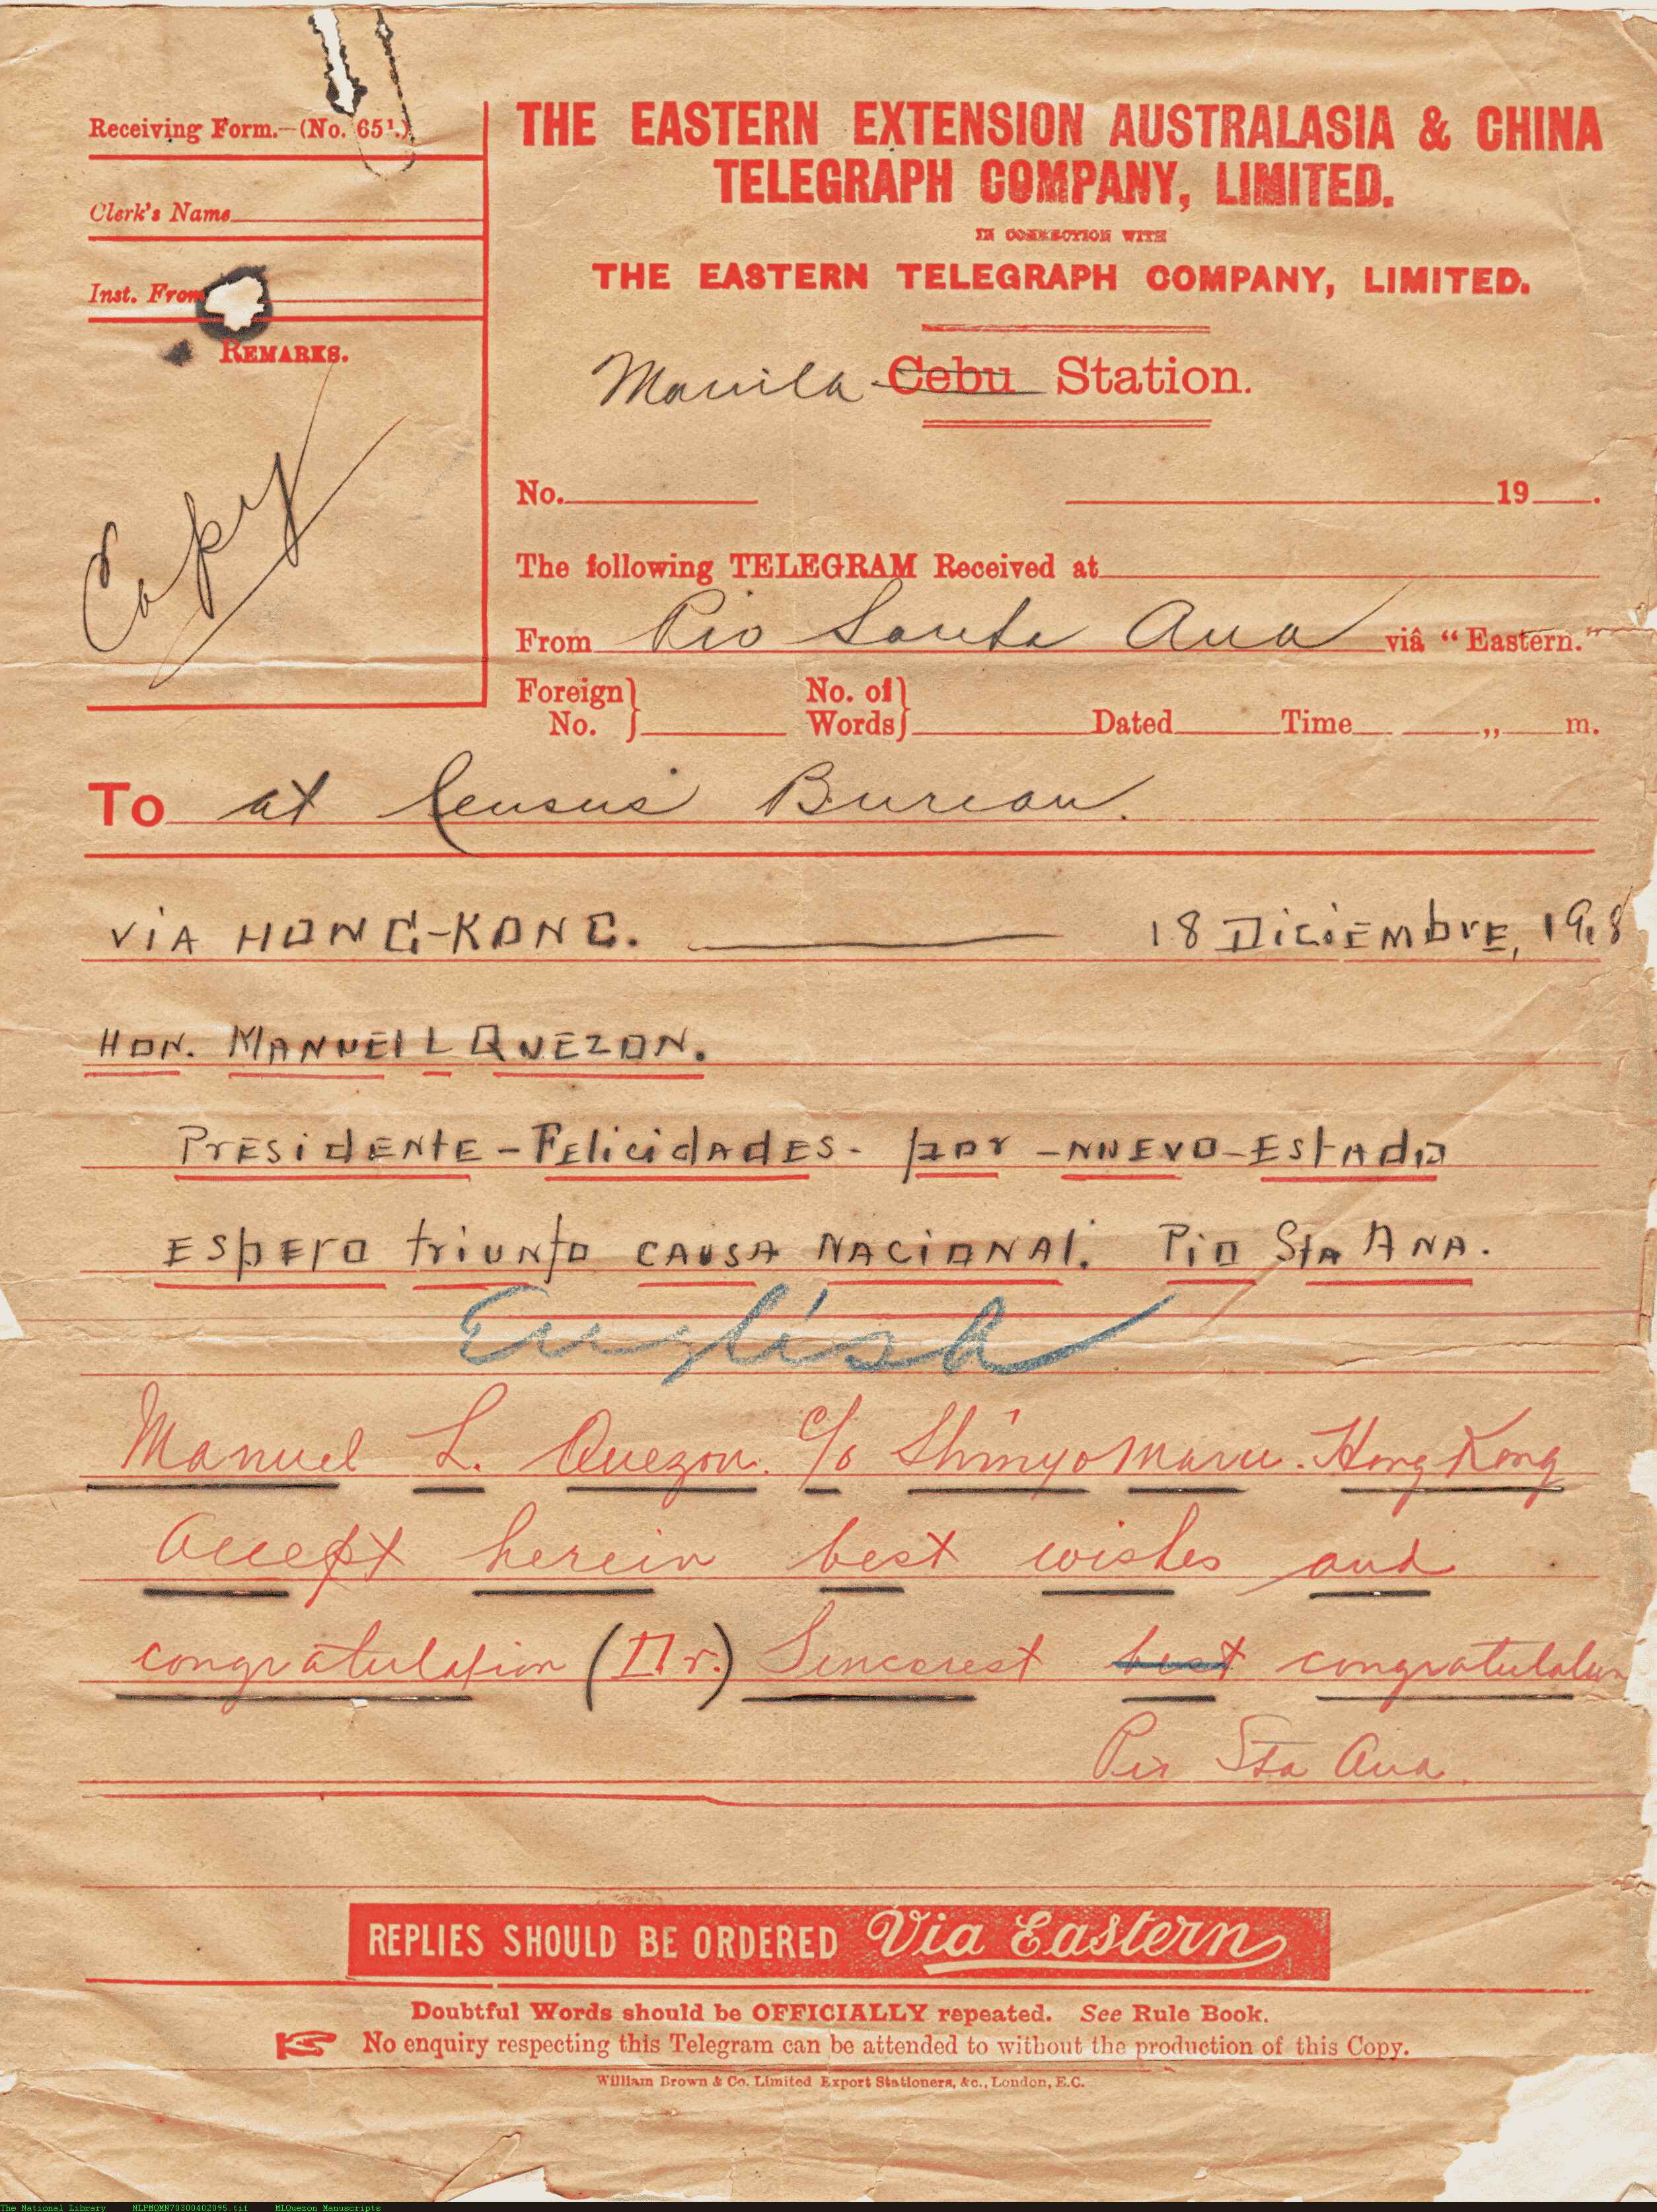 Receiving Form.—(No. 65¹.)
Clerk's Name
Inst. From
REMARKS.
Copy
THE EASTERN EXTENSION AUSTRALASIA & CHINA
TELEGRAPH COMPANY, LIMITED.
IN CONNECTION WITH
THE EASTERN TELEGRAPH COMPANY, LIMITED.
Manila Cebu Station.
No. 19 .
The following TELEGRAM Received at
From Pio Santa Ana viâ "Eastern."
Foreign No. } No. of Words } Dated Time ,, m.
To at Census Bureau.
ViA HONG-KONG. 18 DiCiEMbrE, 1918
HON. MANUEl L QUEZON.
PrESidENtE - FEliCidAdES - por - NUEVO - EStAdO
ESpErO triUNfO CAUSA NACiONAl. PiO StA ANA.
English
Manuel L. Quezon. c/o Shinyo Maru. Hong Kong
Accept herein best wishes and
congratulation (Or.) Sincerest best congratulation
Pio Sta Ana.
REPLIES SHOULD BE ORDERED Via Eastern
Doubtful Words should be OFFICIALLY repeated. See Rule Book.
No enquiry respecting this Telegram can be attended to without the production of this Copy.
William Brown & Co. Limited Export Stationers, &c., London, E.C.
The National Library NLPMQMN70300402095.tif MLQuezon Manuscripts